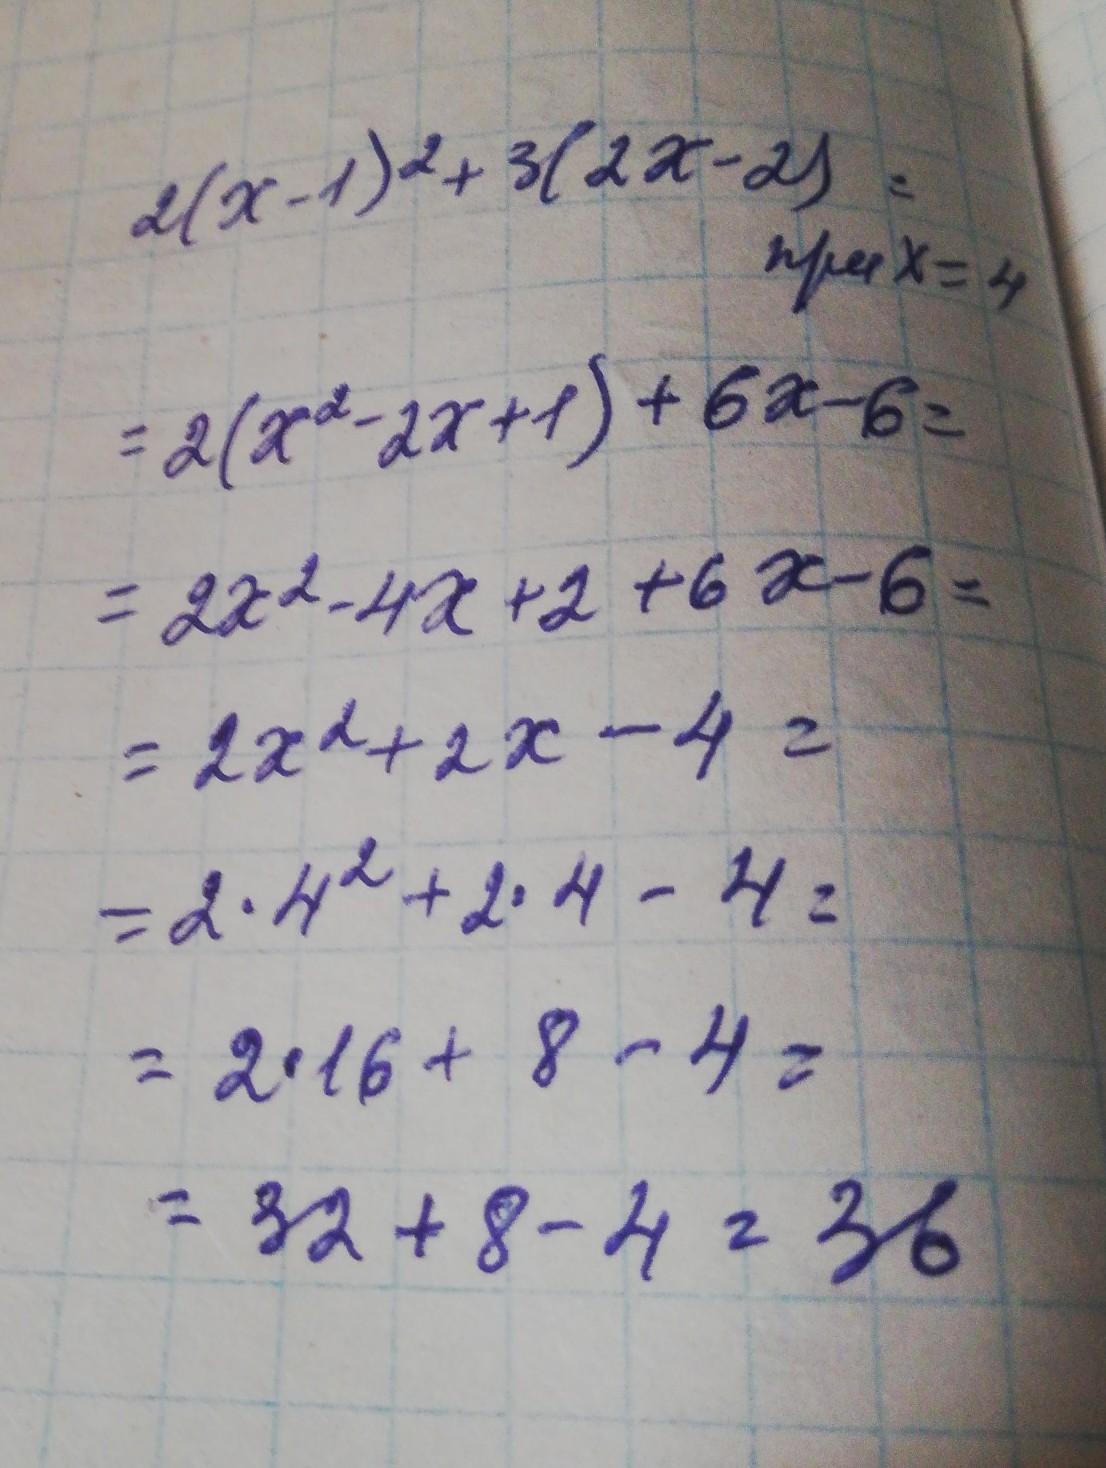 2(x-1)²+3(2x-2) =
при x=4
=2(x²-2x+1)+6x-6=
=2x²-4x+2+6x-6=
=2x²+2x-4=
=2·4²+2·4-4=
=2·16+8-4=
=32+8-4=36